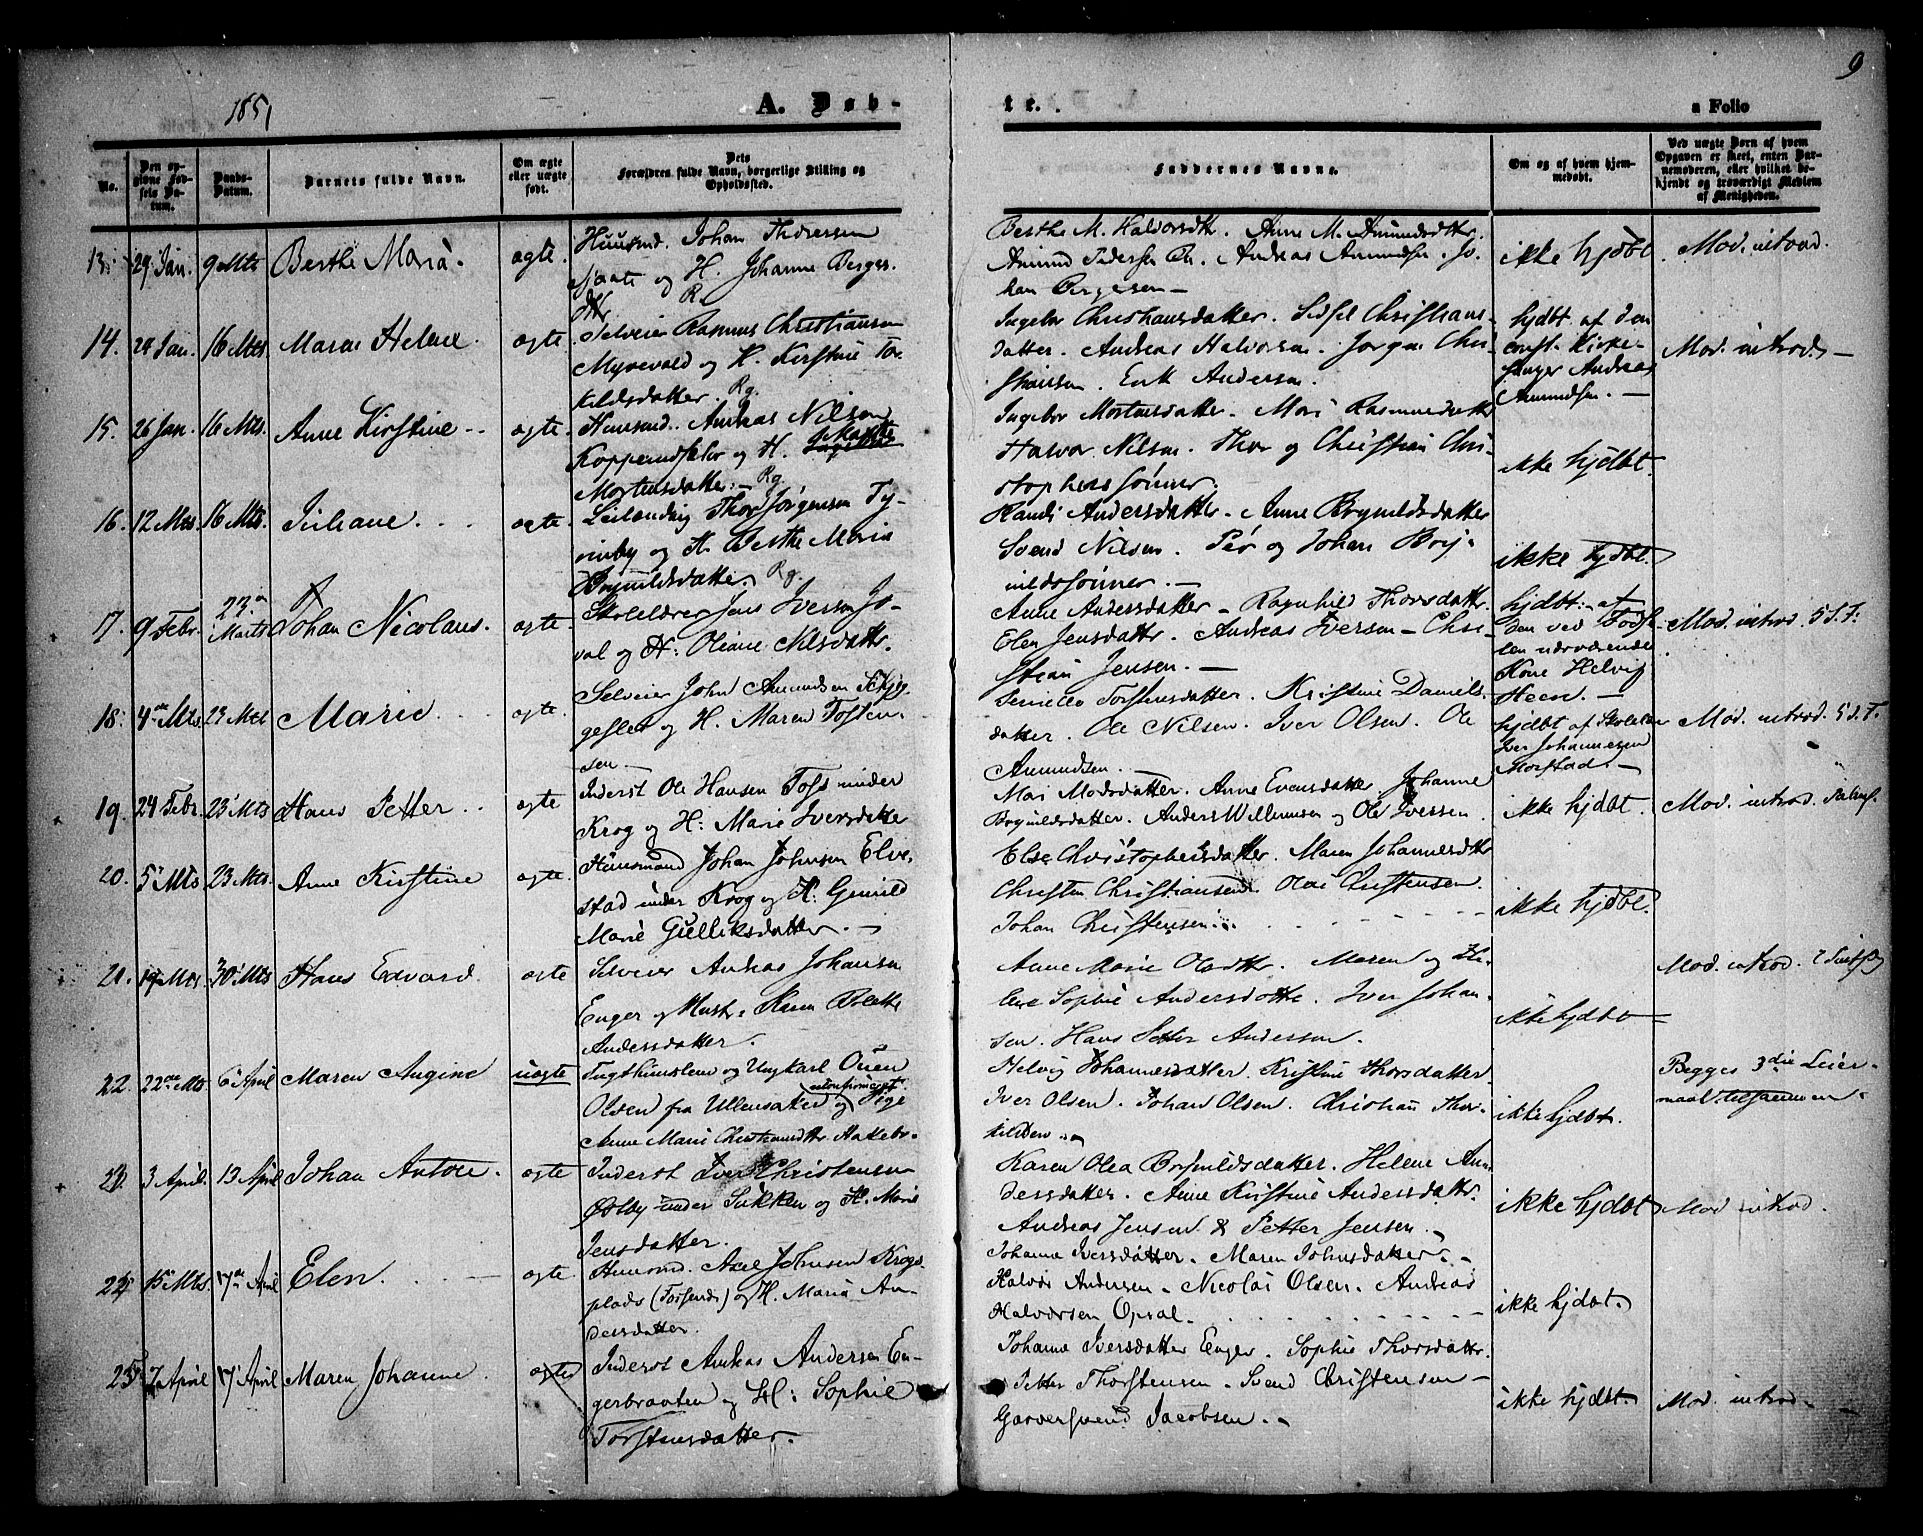 9
1851
A. Døb-
te.
a Folio
No.
Den opgivne Fødsels Datum.
Daabs-Datum.
Barnets fulde Navn.
Om ægte eller uægte født.
Dets Forældres fulde Navn, borgerlige Stilling og Opholdssted.
Faddernes Navne.
Om og af hvem hjemmedøbt.
Ved uægte Børn af hvem Opgaven er skeet, enten Barnemoderen, eller hvilket bekjendt og troværdigt Medlem af Menigheden.
13. 29 Jan. 9 Mts Berthe Maria. ægte.
Huusmd. Johan Thoresen
og H. Johanne Berger
Dtr. R.
Berthe M. Halvorsdtr. Anne M. Amundsdtr.
Amund Pedersen Andreas Amundsen. Jo-
han Bergersen —
ikke hjdbt. Mod. introd.
14. 24 Jan. 16 Mts. Maren Helene. ægte.
Selveier Rasmus Christiansen
Myrevold og H. Kirstine Tor
kildsdatter. Rg.
Ingebor Christiansdatter. Sidsel Christians-
datter. Andreas Halvorsen. Jørgen Chri-
stiansen. Erik Andersen.
hjdbt. af den
const. Kirke-
sanger Andreas
Amundsen. —
Mod. introd. —
15. 26 Jan. 16 Mts. Anne Kirstine -- ægte.
Huusmd. Andreas Nilsen
og H. Marthe
Mortensdatter. — Rg.
Ingebor Mortensdatter. Mari Rasmusdatter
Halvor Nilsen. Thor og Christian Chri-
stophersønner.
ikke hjdbt.
16. 12 Mts. 16 Mts. Juliane. ægte.
Leilending Thor Jørgensen Ty-
og H. Berthe Maria
Brynildsdatter. Rg.
Randi Andersdatter. Anne Brynildsdatter
Svend Nilsen. Per og Johan Bry-
nildssønner. —
ikke hjdbt.
17. 9 Febr. 23. Marts Johan Nicolaus. ægte.
Skolelærer Jens Iversen Jo-
val og H: Oliane Nilsdattr.
Anne Andersdatter — Ragnhild Thorsdatter.
Elen Jensdattr. Andreas Iversen — Chri-
stian Jensen. —
hjdbt. af
den ved Fods-
len nærværende
Kone Helvig
Heen. —
Mod. introd. 5 S. T.
18. 4de Mts. 23 Mts Marie ægte.
Selveier John Amundsen
og H. Maren Tosten-
sen —
Torstensdatter. Kristine Daniels-
datter. Ole Nilsen. Iver Olsen. Ole
Amundsen. —
hjdbt af Skolelær
Iver Johannesen
Morstad. —
Mod. introd. 5 S. T.
19. 24 Febr. 23 Mts Hans Petter ægte
Inderst Ole Hansen Foss under
Krog og H: Marie Iversdatter
Mari Madsdatter. Anne Evensdatter Johanne
Brynildsdatter. Anders Willumsen og Ole Iversen.
ikke hjdbt. Mod. introd.
20. 5 Mts 23 Mts. Anne Kirstine ægte.
Huusmand Johan Johnsen Elve-
stad under Krog og H. Gunild
Marie Gulliksdatter. —
Else Christophersdatter. Maren Johannesdtr
Christen Christiansen. Olai Christensen.
Johan Christensen.
ikke hjdbt.
21. 19 Mts. 30 Mts Hans Edvard. ægte
Selveier Andreas Johansen
Enger og Hustr. Karen Bolethe
Andersdatter.
Anne Marie Olsdtr. Maren og He-
lene Sophie Andersdattr. Iver Johan-
sen. Hans Petter Andersen.
ikke hjdbt
Mod. introd.
22. 22de Mts 6 April Maren Angine uægte
og Ungkarl Ouen
Olsen fra Ullensaker og Pige
Anne Marie Christiansdtr. Hakkebo.
Helvig Johannesdatter. Kristine Thorsdatter
Iver Olsen. Johan Olsen. Christian Thor-
kildsen.
ikke hjdbt.
Begges 3die Leier-
maal tilsammen.
23. 3 April. 13 April Johan Antore. ægte
Inderst Iver Christensen
Østby under Sukken og H. Marie
Jensdatter.
Karen Olea Brynildsdatter. Helene An-
dersdatter. Anne Kristine Andersdattr.
Andreas Jensen & Petter Jensen. —
ikke hjdbt Mod. introd.
24. 15 Mts. 17de April Elen. ægte.
Huusmd. Axel Johnsen Krogs-
plads og H. Maria An-
dersdatter.
Johanne Iversdatter. Maren Johnsdatter. —
Halvor Andersen. Nicolai Olsen. Andreas
Halvorsen Opsal.
ikke hjdbt.
25. 7 April 17 April Maren Johanne. ægte
Inderst Andreas Andersen En-
gerbraaten og H: Sophie
Torstensdatter.
Johanne Iversdatter Enger. Sophie Thorsdattr.
Petter Thorstensen. Svend Christensen —
Garversvend Jacobsen. —
ikke hjdbt. Mod. introd. —